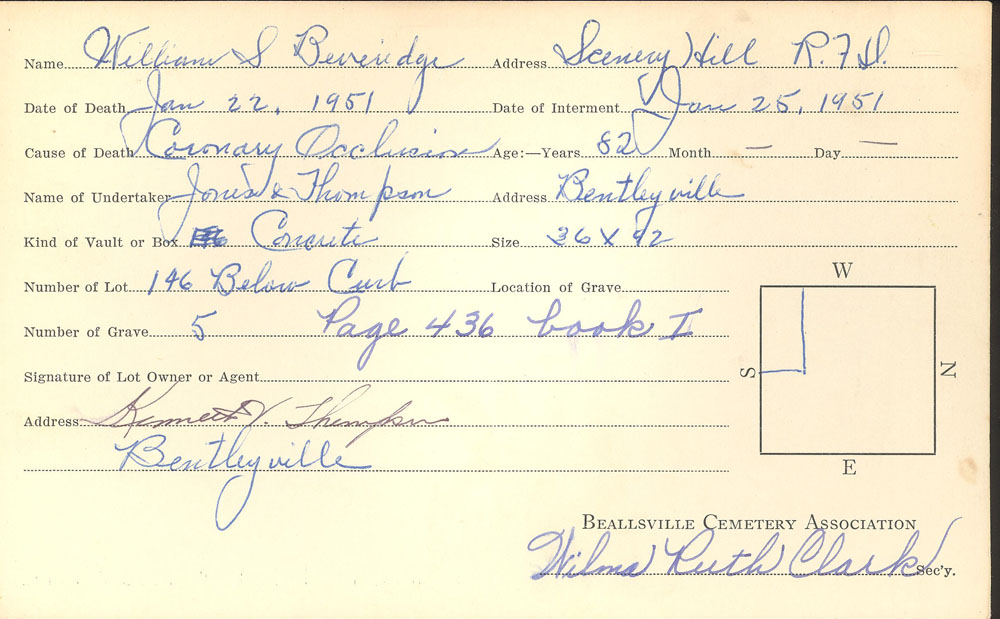 Name William S Beveridge Address Scenery Hill R.F.D.
Date of Death Jan 22, 1951 Date of Interment Jan 25, 1951
Cause of Death Coronary Occlusion Age:—Years 82 Month — Day —
Name of Undertaker Jones & Thompson Address Bentleyville
Kind of Vault or Box Concrete Size 36 X 92
Number of Lot 146 Below Curb Location of Grave
W
Number of Grave 5 Page 436 book I
S N
Signature of Lot Owner or Agent
Address: Kenneth V. Thompson
Bentleyville
E
BEALLSVILLE CEMETERY ASSOCIATION
Wilma Ruth Clark Sec'y.